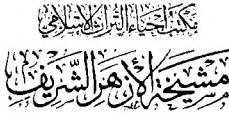 مكتب إحياء التراث الإسلامي
مشيخة الأزهر الشريف